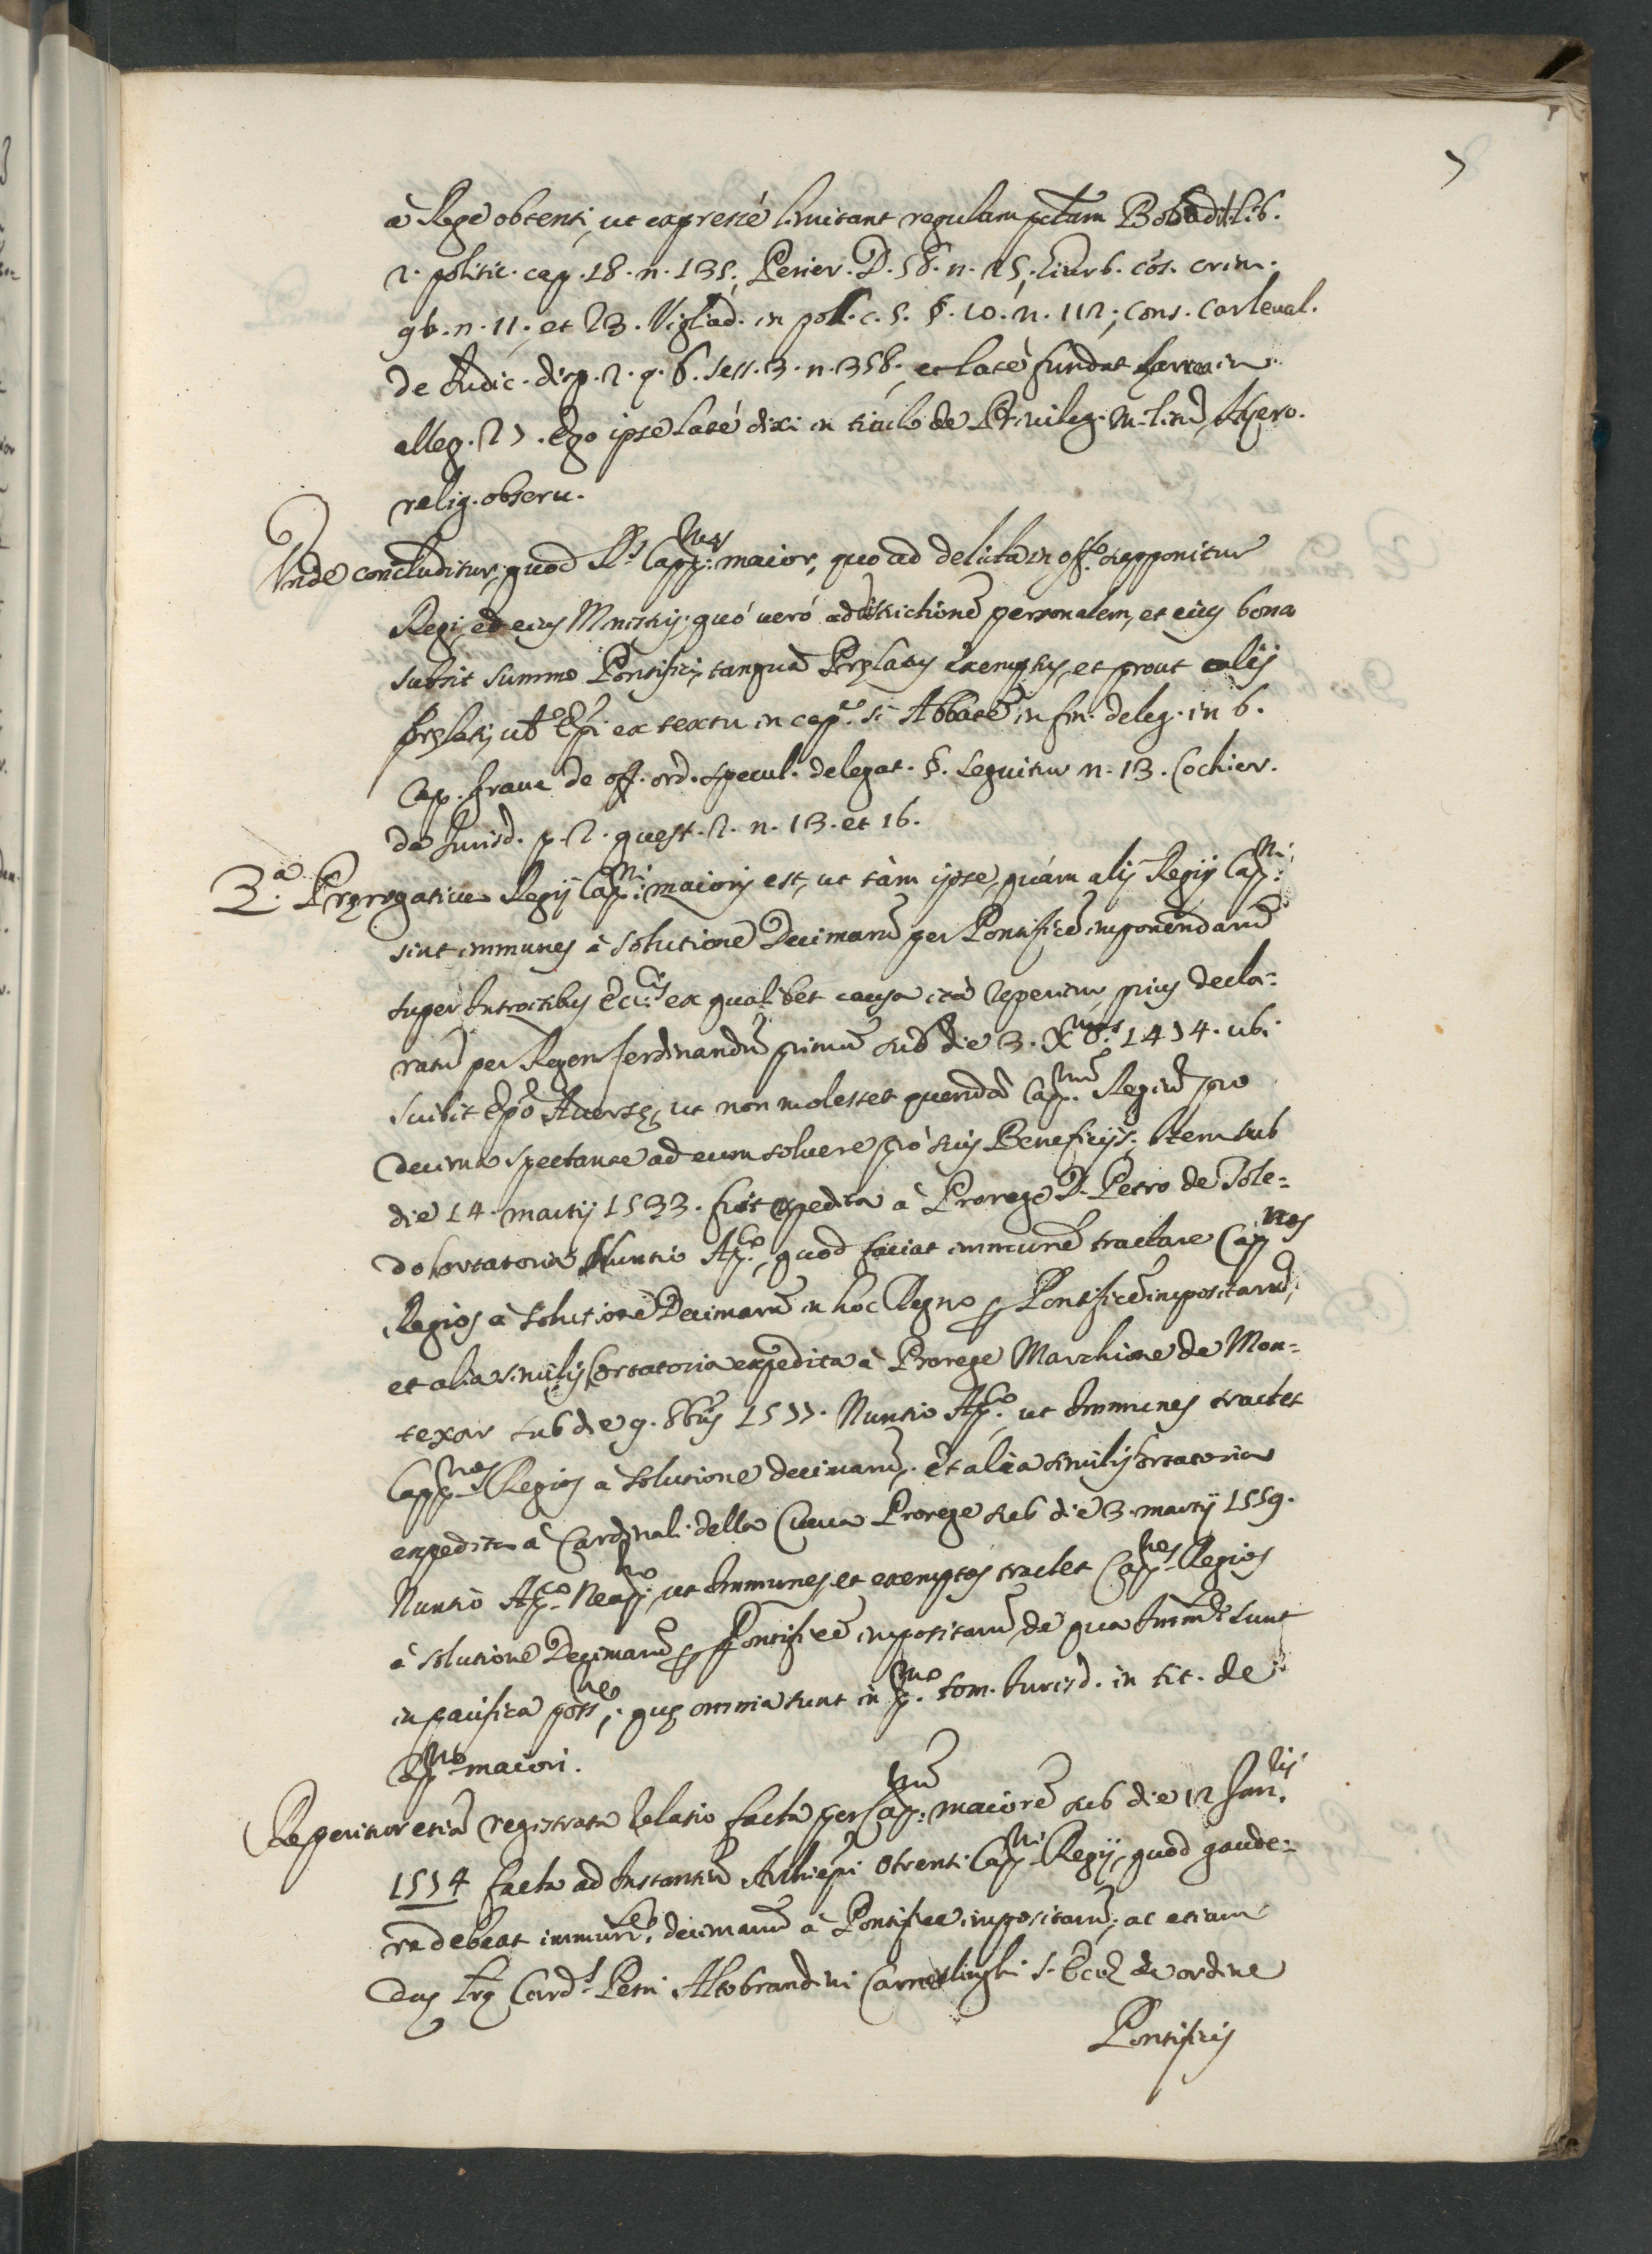 7
à Rege obtenti, ut expressè limitant regulam pctam Bobadil. lib.
2. politic. cap. 18. n. 135; D. 58. n. 25; Giurb. cōs. crim.
96. n. 11. et 23. in c. 5. §. 10. n. 112; Cons. Carleual.
de Iudic. disp. 2. q. 6. sess. 3. n. 358. et latè fundat in
alleg. 27. Ego ipse latè dixi in titulo de Priuileg. Milit.
relig. obseru.
Vnde concluditur, quod Rs Capp.nus maior, quo ad delicta in off.o supponitur
Regi, et eius Mnistris; quó ueró ad districtionē personalem, et eius bona
subsit summo Pontifici, tanquā Prelatus exemptus, et prout alij
Prelati, ut Epi ex textu in cap.o si Abbatē in fin. deleg. in 6.
Cap. graue de off. ord. specul. delegat. §. sequitur n. 13. Cochier.
de Iurisd. p. 2. quest. 2. n. 13. et 16.
3.a Prerogatiua Regij Cap.ni maioris est, ut tàm ipse, quàm alij Regij Cap.ni
sint immunes à solutione Decimarū per Pontificē imponendarū
super Introitibus ex qualibet causa ità reperitur prius decla=
ratū per Regem ferdinandū primū sub die 3. Xbris 1474. ubi
scribit Epō Auerse, ut non molestet quendā Cap.num Regiū pro
decima spectante ad eum soluere pro suis Beneficijs; Item sub
die 14. martij 1533. fuit expedita à Prorege D. Petro de Tole=
do hortatoria Nuntio Ap.co, quod faciat immunē tractare Capp.nos
Regios à solutione Decimarū in hoc Regno p Pontificē impositarū,
et alia similis hortatoria expedita à Prorege Marchione de Mon=
texar sub die 9. 8bris 1577. Nuntio Ap.co ut Immunes tractet
Capp.nos Regios à solutione decimarū, et alia similis hortatoria
expedita à Cardinali della Cueua Prorege sub die 3. martij 1559.
Nuntio Ap.co Neap.no ut Immunes, et exemptos tractet Capp.nos Regios
à solutione Decimarū p Pontificē impositarū de qua sunt
in pacifica poss.ne; que omnia sunt in p.mo tom. Iurisd. in tit. de
Capp.no maiori.
Reperitur etiā registrata relatio facta per Cap.num maiorē sub die 12 Ian.rij
1574 facta ad Instantiā Archiepi Otrenti Capp.ni Regij, quod gaude=
re debeat decimarū à Pontifice impositarū; ac etiam
Card.l Petri Altobrandini Camerlinghi de ordine
Pontificis